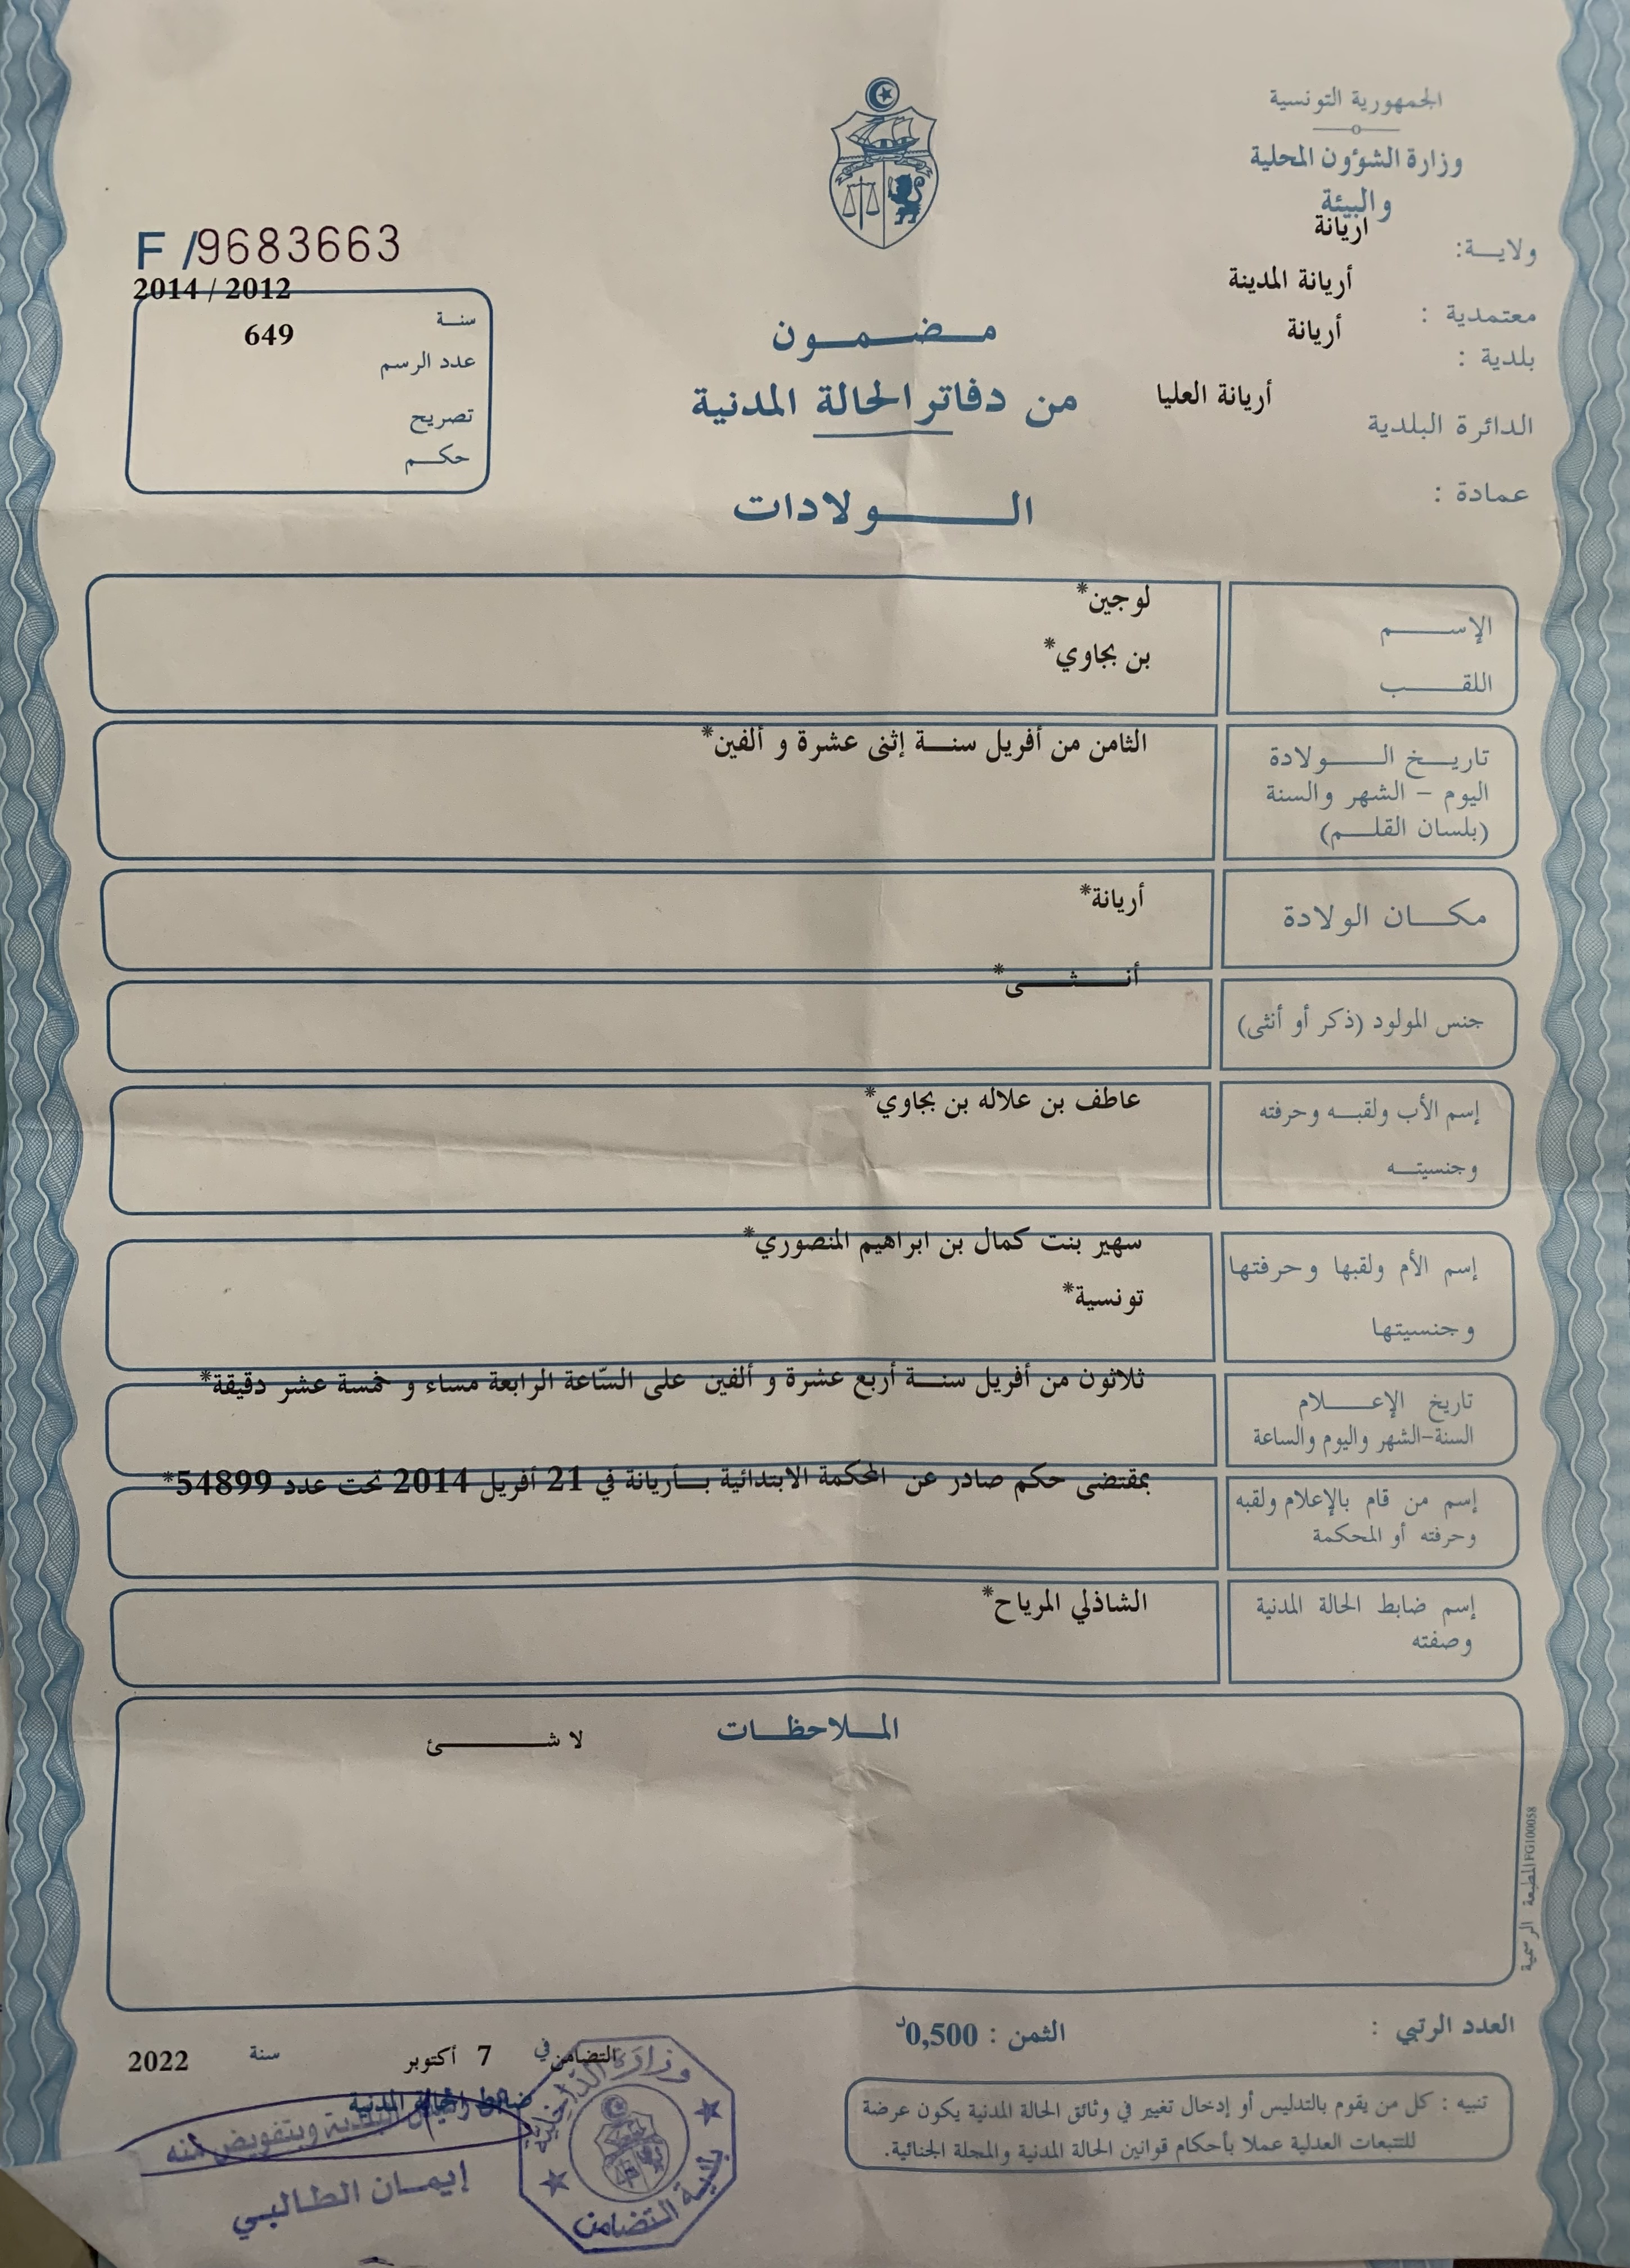 الجمهورية التونسية
وزارة الشؤون المحلية
والبيئة
ولاية: اريانة
معتمدية : أريانة المدينة
بلدية : أريانة
الدائرة البلدية أريانة العليا
عمادة :
F /9683663
سنة 2014 / 2012
عدد الرسم 649
تصريح
حكم
مضمون
من دفاتر الحالة المدنية
الولادات
الإسم لوجين*
اللقب بن بجاوي*
تاريخ الولادة الثامن من أفريل سنة إثنى عشرة و ألفين*
اليوم - الشهر والسنة
(بلسان القلم)
مكان الولادة أريانة*
جنس المولود (ذكر أو أنثى) أنثى*
إسم الأب ولقبه وحرفته عاطف بن علاله بن بجاوي*
وجنسيته
إسم الأم ولقبها وحرفتها سهير بنت كمال بن ابراهيم المنصوري*
وجنسيتها تونسية*
تاريخ الإعلام ثلاثون من أفريل سنة أربع عشرة و ألفين على السّاعة الرابعة مساء و خمسة عشر دقيقة*
السنة-الشهر واليوم والساعة
إسم من قام بالإعلام ولقبه بمقتضى حكم صادر عن المحكمة الابتدائية بأريانة في 21 أفريل 2014 تحت عدد 54899*
وحرفته أو المحكمة
إسم ضابط الحالة المدنية الشاذلي المرياح*
وصفته
الملاحظات
لا شئ
المطبعة الرسمية FG100058
العدد الرتبي :
الثمن : 0,500د
التضامن في 7 أكتوبر سنة 2022
ضابط الحالة المدنية
وبتفويض منه
إيمان الطالبي
وزارة الداخلية
بلدية التضامن
تنبيه : كل من يقوم بالتدليس أو إدخال تغيير في وثائق الحالة المدنية يكون عرضة
للتتبعات العدلية عملا بأحكام قوانين الحالة المدنية والمجلة الجنائية.